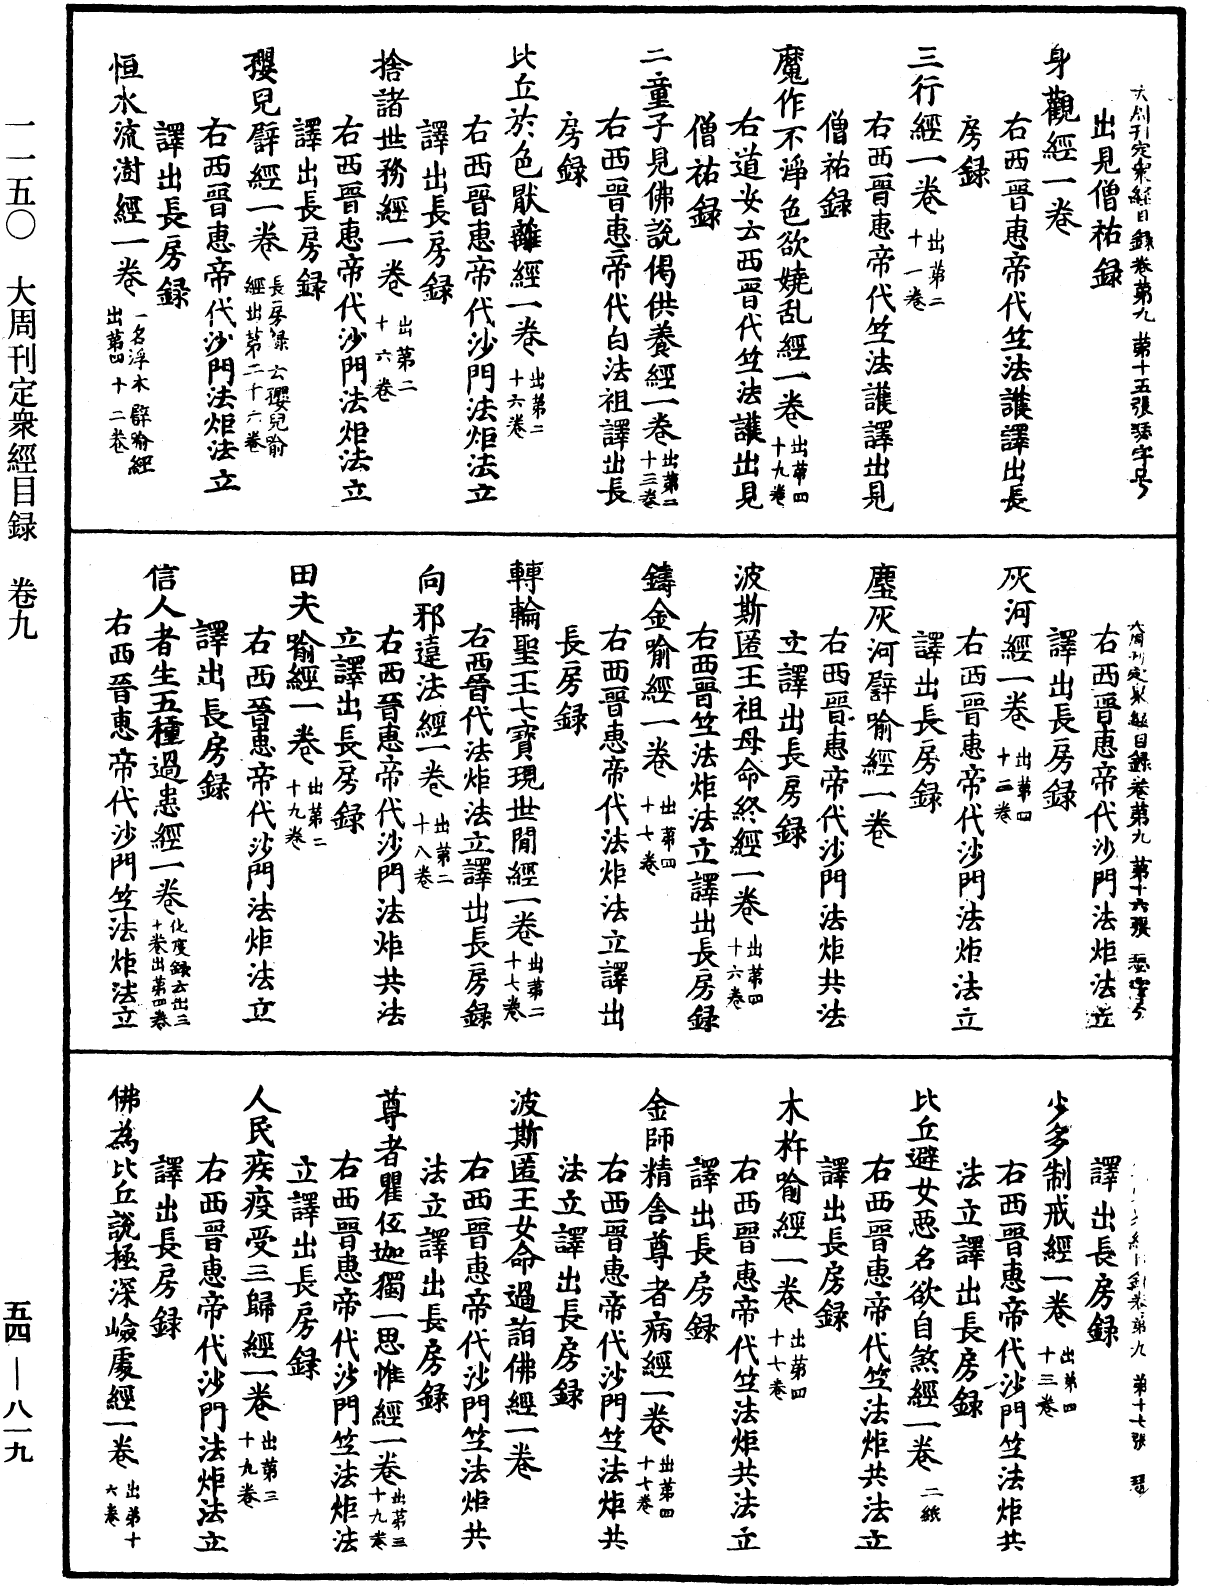 大周刊定衆經目録卷第九 第十五張 瑟字号
出見僧祐録
身觀經一卷
右西晋惠帝代竺法護譯出長
房録
三行經一卷 出第二十一卷
右西晋惠帝代竺法護譯出見
僧祐録
魔作不淨色欲嬈乱經一卷 出第四十九卷
右道安云西晋代竺法護出見
僧祐録
二童子見佛說偈供養經一卷 出第二十三卷
右西晋惠帝代白法祖譯出長
房録
比丘於色厭離經一卷 出第二十六卷
右西晋惠帝代沙門法炬法立
譯出長房録
捨諸世務經一卷 出第二十六卷
右西晋惠帝代沙門法炬法立
譯出長房録
瓔兒譬經一卷 長房録云瓔兒喻經出第二十六卷
右西晋惠帝代沙門法炬法立
譯出長房録
恒水流澍經一卷 一名浮木譬喻經出第四十二卷
大周刊定衆經目録卷第九 第十六張 瑟字号
右西晋惠帝代沙門法炬法立
譯出長房録
灰河經一卷 出第四十二卷
右西晋惠帝代沙門法炬法立
譯出長房録
塵灰河譬喻經一卷
右西晋惠帝代沙門法炬共法
立譯出長房録
波斯匿王祖母命終經一卷 出第四十六卷
右西晋竺法炬法立譯出長房録
鑄金喻經一卷 出第四十七卷
右西晋惠帝代法炬法立譯出
長房録
轉輪聖王七寶現世間經一卷 出第二十七卷
右西晋代法炬法立譯出長房録
向邪違法經一卷 出第二十八卷
右西晋惠帝代沙門法炬共法
立譯出長房録
田夫喻經一卷 出第二十九卷
右西晋惠帝代沙門法炬法立
譯出長房録
信人者生五種過患經一卷 化度録云出三十卷出第四卷
右西晋惠帝代沙門竺法炬法立
卷第九 第十七張 瑟
譯出長房録
少多制戒經一卷 出第四十三卷
右西晋惠帝代沙門竺法炬共
法立譯出長房録
比丘避女惡名欲自煞經一卷 二紙
右西晋惠帝代竺法炬共法立
譯出長房録
木杵喻經一卷 出第四十七卷
右西晋惠帝代竺法炬共法立
譯出長房録
金師精舍尊者病經一卷 出第四十七卷
右西晋惠帝代沙門竺法炬共
法立譯出長房録
波斯匿王女命過詣佛經一卷
右西晋惠帝代沙門竺法炬共
法立譯出長房録
尊者瞿伍迦獨一思惟經一卷 出第三十九卷
右西晋惠帝代沙門竺法炬法
立譯出長房録
人民疾疫受三歸經一卷 出第三十九卷
右西晋惠帝代沙門法炬法立
譯出長房録
佛為比丘說極深嶮處經一卷 出第十六卷
一一五〇 大周刊定衆經目録 卷九
五四—八一九